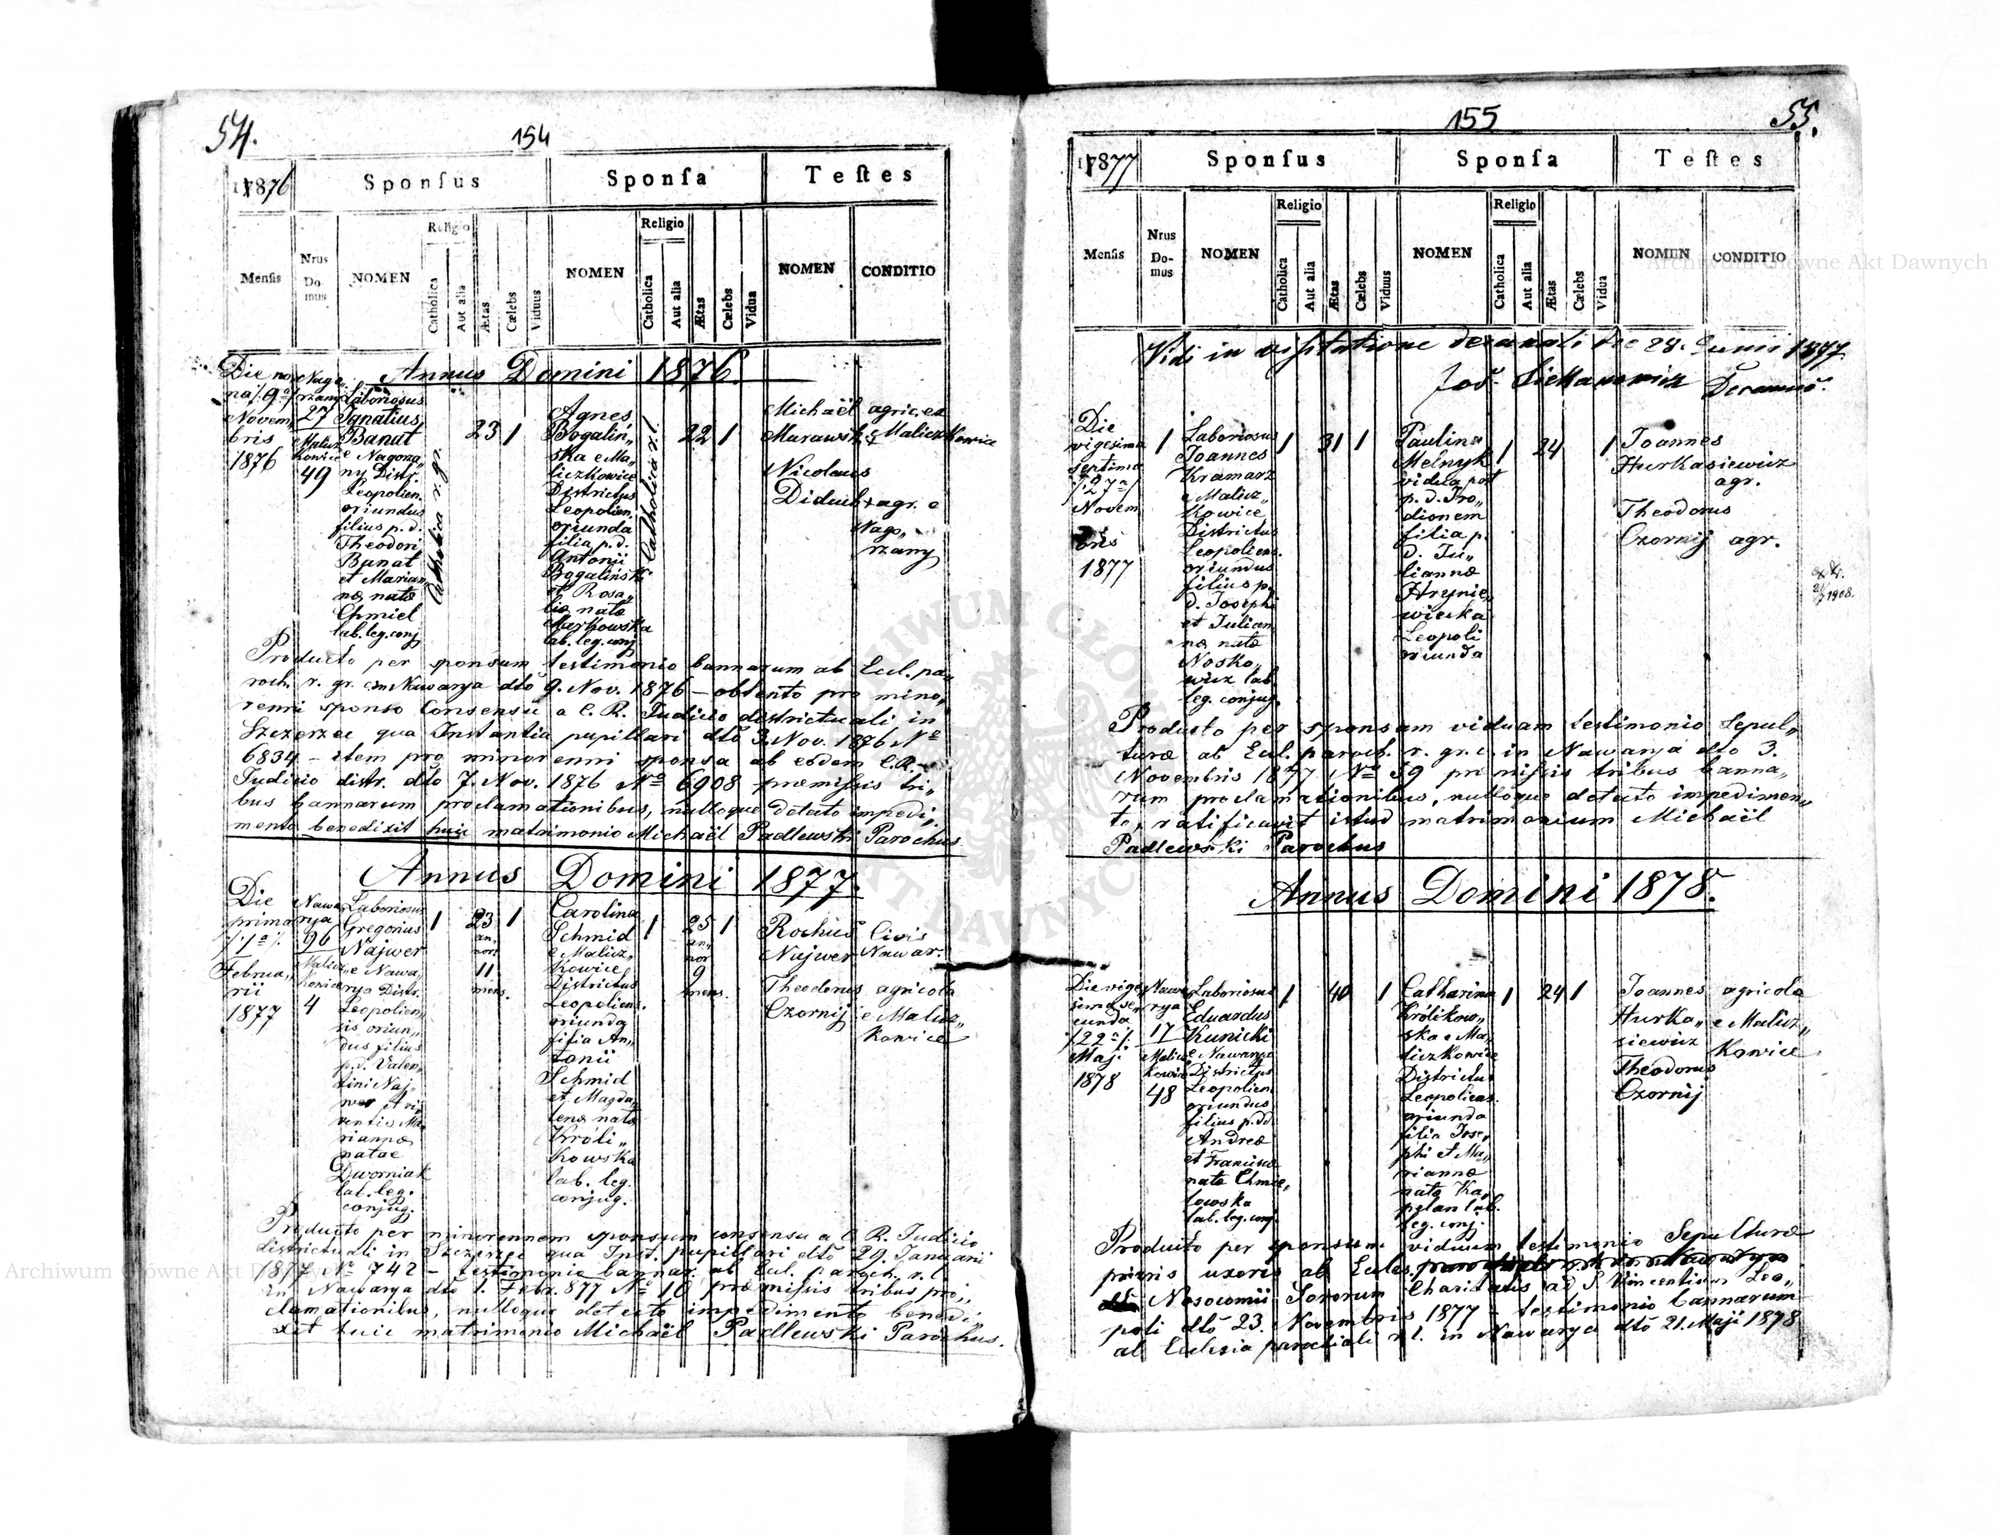 54.
154
1876
Sponsus
Sponsa
Testes
Mensis
Nrus Domus
NOMEN
Religio
Catholica
Aut alia
Ætas
Cælebs
Viduus
NOMEN
Religio
Catholica
Aut alia
Ætas
Cælebs
Vidua
NOMEN
CONDITIO
Annus Domini 1876.
Die no„
na /.9ª/
Novem„
bris
1876
Nago„
rzany
27
Malicz„
kowice
49
Laboriosus
Ignatius
Banat
e Nagorza„
ny Distr.
Leopolien.
oriundus
filius p. d.
Theodori
Banat
et Marian„
næ natæ
Chmiel
lab. leg. conj.
Catholica r. gr.
23
1
Agnes
Bogaliń„
ska e Ma„
liczkowice
Districtus
Leopolien.
oriunda
filia p. d.
Antonii
Bogaliński
et Rosa„
liæ natæ
Murkowska
lab. leg. conj.
Catholica r. l.
22
1
Michaël
Murawski
agric. ex
Maliczkowice
Nicolaus
Diduch + agr. e
Nago„
rzany
Producto per sponsum testimonio bannorum ab Eccl. pa„
roch. r. gr. c. in Nawarya dtô 9. Nov. 1876 – obtento pro mino„
renni sponso consensu a C. R. Judicio districtuali in
Szczerzec qua Instantia pupillari dtô 3. Nov. 1876 Nº
6834 – item pro minorenni sponsa ab eodem C. R.
Judicio distr. dtô 7. Nov. 1876 Nº 6908 – præmissis tri„
bus bannorum proclamationibus, nulloque detecto impedi„
mento benedixit huic matrimonio Michaël Padlewski Parochus
Annus Domini 1877.
Die
prima
/.1ª/.
Februa„
rii
1877
Nawa„
rya
96
Malicz„
kowice
4
Laboriosus
Gregorius
Najwer
e Nawa„
rya Distr.
Leopolien„
sis oriun„
dus filius
p. d. Valen„
tini Naj„
wer et vi„
ventis Ma„
riannæ
natae
Dworniak
lab. leg.
conjug.
1
23
an„
nor.
11
mens.
1
Carolina
Schmid
e Malicz„
kowice
Districtus
Leopoliens.
oriunda
filia An„
tonii
Schmid
et Magda„
lenæ natæ
Króli„
kowska
lab. leg.
conjug.
1
25
an„
nor.
9
mens.
1
Rochus
Najwer
Civis
Nawar.
Theodorus
Czornij
agricola
e Malicz„
kowice
Producto per minorennem sponsum consensu a C. R. Judicio
districtuali in Szczerzec qua Inst. pupillari dtô 29. Januarii
1877 Nº 742 – testimonio bannor. ab Eccl. paroch. r. l.
in Nawarya dtô 1. Febr. 877 Nº 10 præmissis tribus pro„
clamationibus, nulloque detecto impedimento benedi„
xit huic matrimonio Michaël Padlewski Parochus.
155
55.
1877
Sponsus
Sponsa
Testes
Mensis
Nrus Domus
NOMEN
Religio
Catholica
Aut alia
Ætas
Cælebs
Viduus
NOMEN
Religio
Catholica
Aut alia
Ætas
Cælebs
Vidua
NOMEN
CONDITIO
Vidi in visitatione decanali die 28. Junii 1877.
Decanus.
Die
vigesima
septima
/.27ª/
Novem
bris
1877
1
Laboriosus
Joannes
Kramarz
e Malicz„
kowice
Districtus
Leopoliens.
oriundus
filius p.
d. Josephi
et Julian„
næ natæ
Nosko„
wicz lab.
leg. conjug.
1
31
1
Paulina
Melnyk
vidua post
p. d. Pro„
dionem
filia p.
d. Ju„
liannæ
Hrynie„
wiecka
Leopoli
oriunda
1
24
1
Joannes
Hurkasiewicz
agr.
Theodorus
Czornij agr.
1908.
Producto per sponsam viduam testimonio sepul„
turæ ab Eccl. paroch. r. gr. c. in Nawarya dtô 3.
Novembris 1877 Nº 59 præmissis tribus banno„
rum proclamationibus, nulloque detecto impedimen„
to, ratificavit istud matrimonium Michaël
Padlewski Parochus
Annus Domini 1878.
Die vige„
sima se„
cunda
/.22ª/.
Maji
1878
Nawa„
rya
17
Malicz„
kowice
48
Laboriosus
Eduardus
Kunicki
e Nawarya
Districtus
Leopolien.
oriundus
filius p. dd.
Andreæ
et Franciscæ
natæ Chmie„
lowska
lab. leg. conj.
1
40
1
Catharina
Królikow„
ska e Ma„
liczkowice
Districtus
Leopoliens.
oriunda
filia Jose„
phi et Ma„
riannæ
natæ Ka„
pelan lab.
leg. conj.
1
24
1
Joannes
Hurka„
siewicz
agricola
e Malicz„
kowice
Theodorus
Czornij
Producto per sponsum viduum testimonio Sepulturæ
prioris uxoris ab Eccles.
Nosocomii Sororum Charitatis ad S. Vincentium Leo„
poli dtô 23. Novembris 1877 – testimonio bannorum
ab Ecclesia parochiali r. l. in Nawarya dtô 21. Maji 1878
Archiwum Główne Akt Dawnych
Archiwum Główne Akt Dawnych
ARCHIWUM GŁÓWNE AKT DAWNYCH